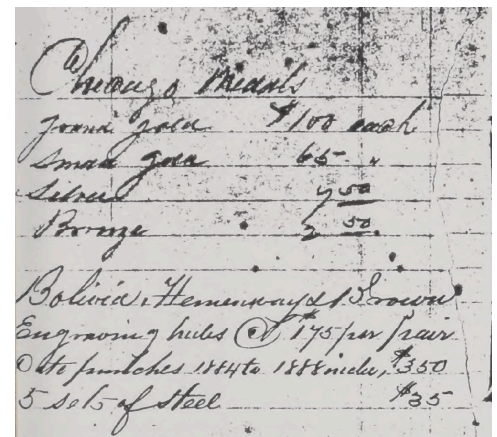 Chicago Medals
Grand gold $100 each
Small gold 65 "
Silver 7 50
Bronze 2 50
Bolivia. Hemenway & Brown
Engraving hubs @ $175 per pair
Date punches 1884 to 1888 inclu, $350
5 sets of steel $35